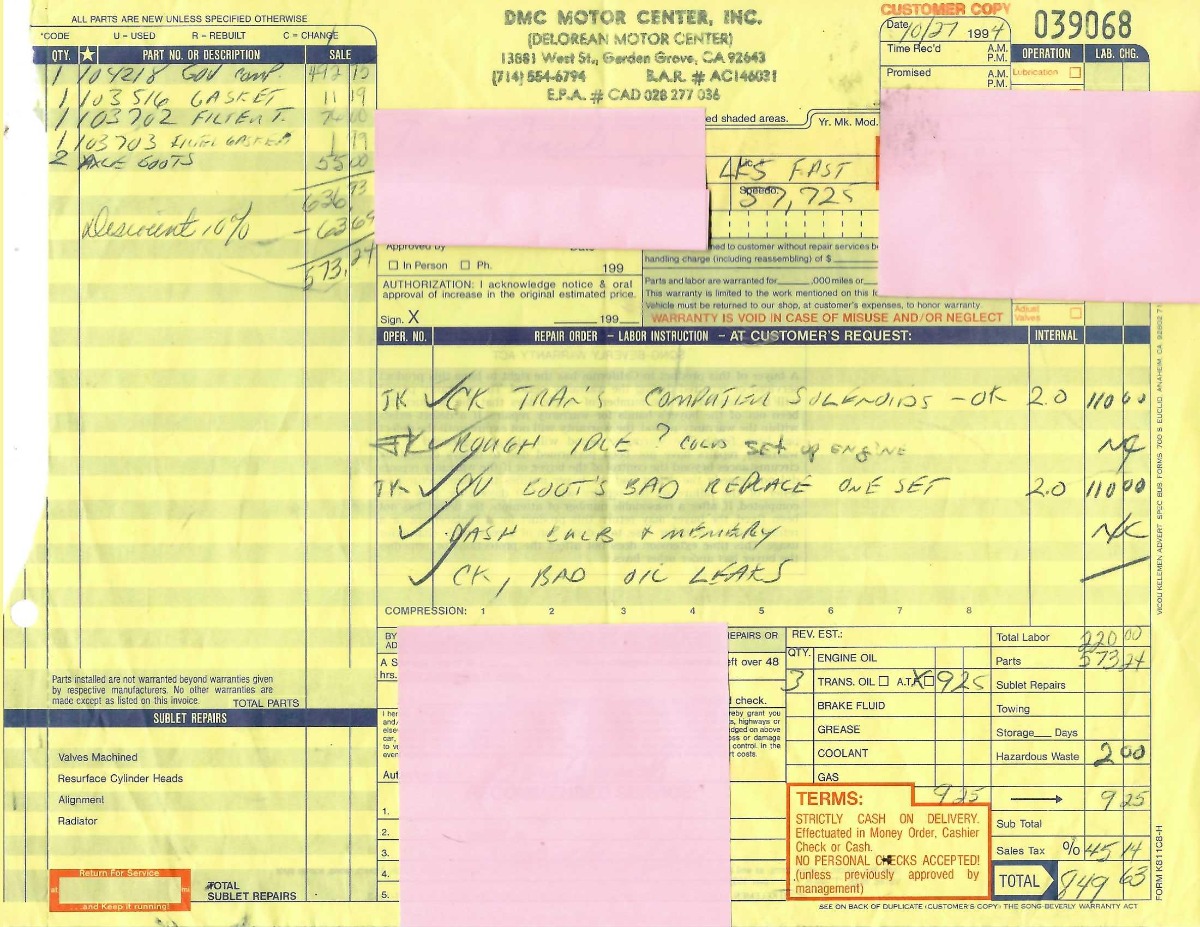 ALL PARTS ARE NEW UNLESS SPECIFIED OTHERWISE
*CODE U - USED R - REBUILT C - CHANGE
QTY. ★ PART NO. OR DESCRIPTION SALE
1 104218 GOV COMP.
1 103516 GASKET 11 19
1 103702 FILTER T.
1 103703 FILTER GASKET 1 99
2 AXLE BOOTS 55 00
636.93
Discount 10% - 63 69
573,24
Parts installed are not warranted beyond warranties given
by respective manufacturers. No other warranties are
made except as listed on this invoice.
TOTAL PARTS
SUBLET REPAIRS
Valves Machined
Resurface Cylinder Heads
Alignment
Radiator
Return For Service
at mi
...and Keep it running!
TOTAL
SUBLET REPAIRS
DMC MOTOR CENTER, INC.
(DELOREAN MOTOR CENTER)
13881 West St., Garden Grove, CA 92643
(714) 554-6794 B.A.R. # AC146031
E.P.A. # CAD 028 277 036
CUSTOMER COPY
039068
Date 10/27 1994
Time Rec'd A.M.
P.M.
Promised A.M.
P.M.
OPERATION LAB. CHG.
Lubrication
ed shaded areas.
Yr. Mk. Mod.
Lic. # 4S FAST
Speedo. 57,725
Approved by Date
In Person Ph. 199
AUTHORIZATION: I acknowledge notice & oral
approval of increase in the original estimated price.
Sign. X 199
ned to customer without repair services b
handling charge (including reassembling) of $
Parts and labor are warranted for ,000 miles or
This warranty is limited to the work mentioned on this
Vehicle must be returned to our shop, at customer's expenses, to honor warranty.
WARRANTY IS VOID IN CASE OF MISUSE AND/OR NEGLECT
Adjust
Valves
OPER. NO. REPAIR ORDER - LABOR INSTRUCTION - AT CUSTOMER'S REQUEST: INTERNAL
TK ✓ CK TRAN'S COMPUTER SOLENOIDS - OK 2.0 110 00
✓ ROUGH IDLE ? COLD SET UP ENGINE NC
TK ✓ CV BOOT'S BAD REPLACE ONE SET 2.0 110 00
✓ DASH BULB + MEMERY N/C
✓ CK, BAD OIL LEAKS
COMPRESSION: 1 2 3 4 5 6 7 8
BY
AD
EPAIRS OR
A S
eft over 48
hrs.
d check.
I her
reby grant you
and/
s, highways or
else
dged on above
car,
oss or damage
to v
control. In the
even
rt costs.
Aut
1.
2.
3.
4.
5.
REV. EST.:
QTY.
ENGINE OIL
3 TRANS. OIL A.T.F. X 9 25
BRAKE FLUID
GREASE
COOLANT
GAS
9 25
TERMS:
STRICTLY CASH ON DELIVERY.
Effectuated in Money Order, Cashier
Check or Cash.
NO PERSONAL CHECKS ACCEPTED!
(unless previously approved by
management)
Total Labor 220 00
Parts 573 24
Sublet Repairs
Towing
Storage Days
Hazardous Waste 2 00
9 25
Sub Total
Sales Tax % 45 14
TOTAL 849 63
SEE ON BACK OF DUPLICATE (CUSTOMER'S COPY) THE SONG-BEVERLY WARRANTY ACT
FORM K811C8-H